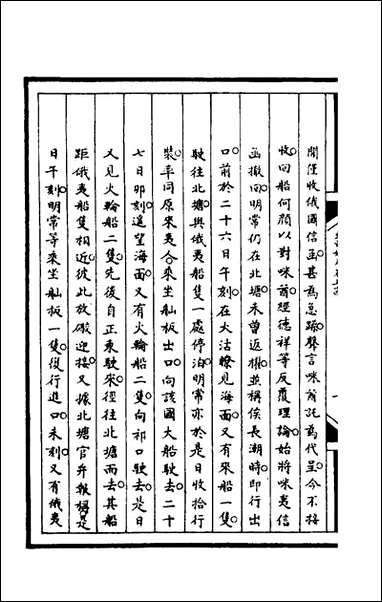 聞僅收俄國信函甚為急躁聲言咪酋託為代呈今不接
收回船何顏以對咪酋經德祥等反覆理論始將咪夷信
函撤回明常仍在北塘未曾返櫂並稱俟長潮時即行出
口前於二十六日午刻在大沽瞭見海面又有來船一隻
駛往北塘與俄夷船隻一處停泊明常亦於是日收拾行
裝率同原來夷人乘坐舢板出口向該國大船駛去二十
七日卯刻遙望海面又有火輪船二隻向祁口駛去是日
又見火輪船二隻先後自正東駛來徑往北塘而去其船
距俄夷船隻相近彼此放礮迎接又據北塘官弁報稱是
日午刻明常等乘坐舢板一隻復行進口未刻又有俄夷